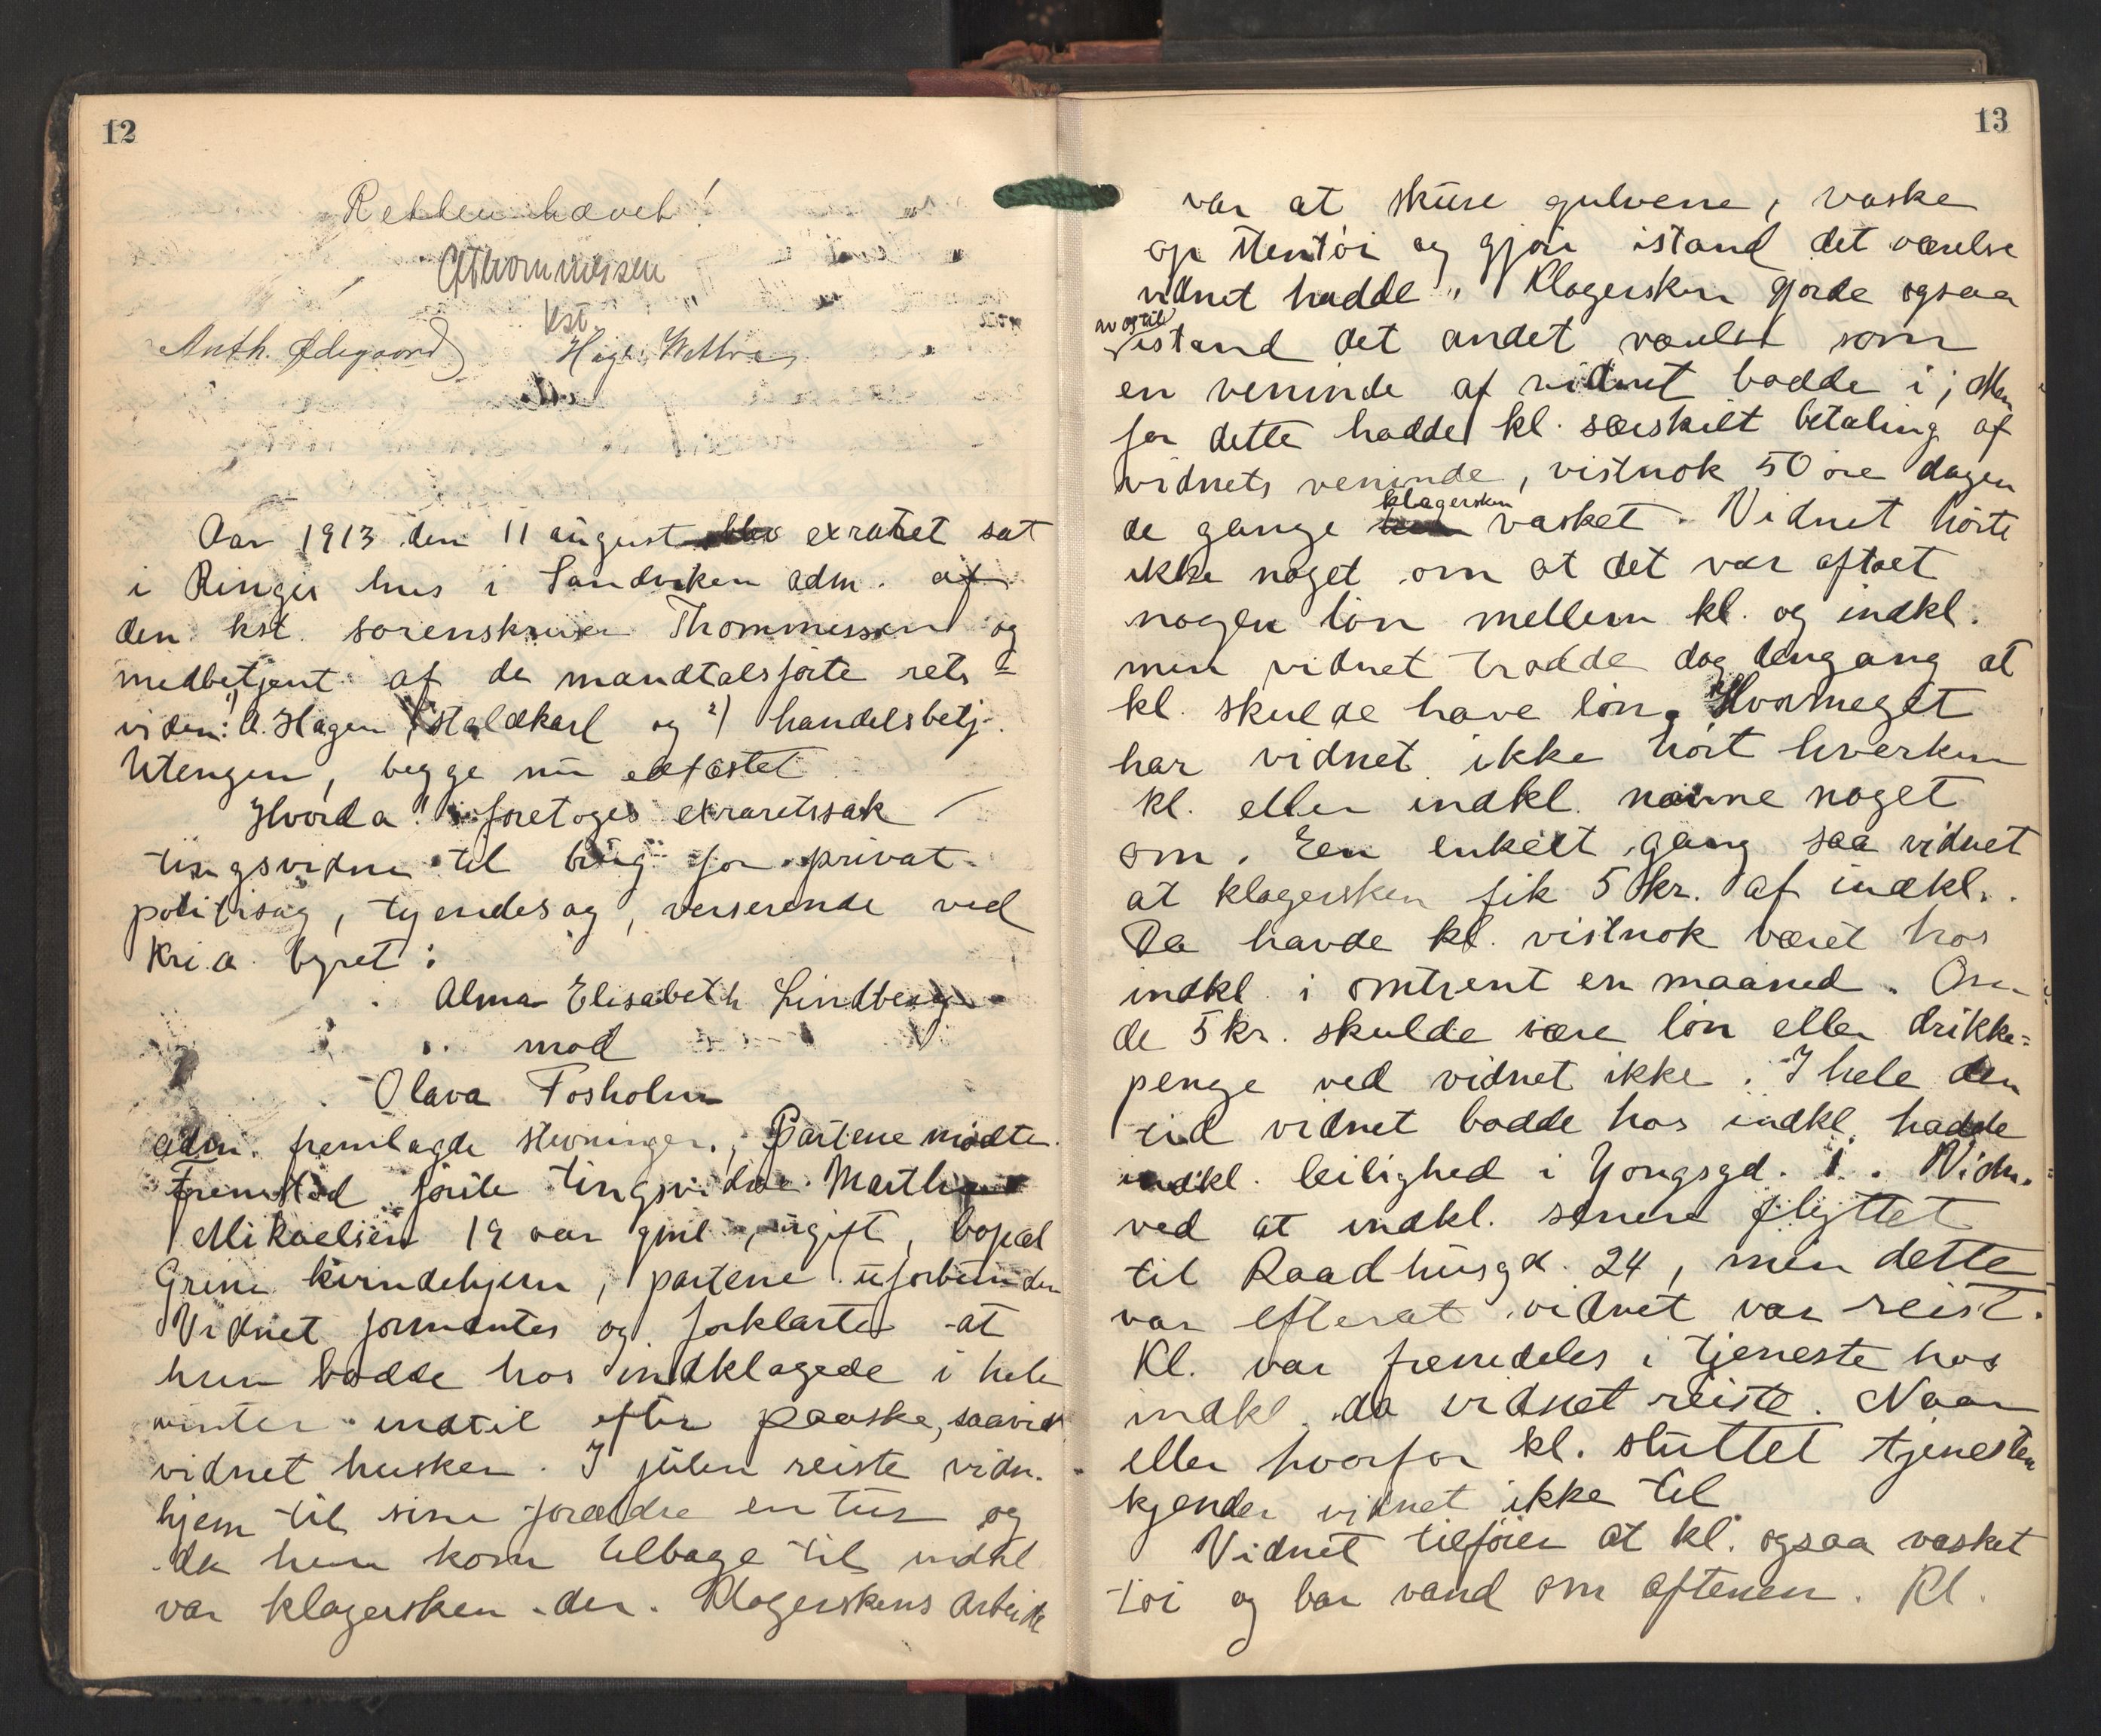 12
Retten hævet!
Thommessen
kst.
Anth. Ødegaard
Aar 1913 den 11 august exraret sat
i Ringis hus i Sandviken adm. af
den kst. sorenskriver Thommessen og
medbetjent af de mandtalsførte rets-
viden: 1) A. Hagen, staldkarl og 2) handelsbetj.
Utengen, begge nu edfæstet
Hvorda! foretoges exraretssak
tingsvidne til brug for privat
politisag, tyendesag, verserende ved
Kri.a byret:
Alma Elisabeth Lindberg
mod
Olava Fosholm
Adm. fremlagde stevninger. Partene mødte.
Fremstod første tingsvidne Marth
Mikaelsen 19 aar gml, ugift, bopæl
Grini kvindehjem, partene uforbunden
Vidnet formantes og forklarte at
hun bodde hos indklagede i hele
vinter indtil efter paaske, saavidt
vidnet husker. I julen reiste vidn.
hjem til sine forældre en tur og
da hun kom tilbage til indkl
var klagersken der. Klagerskens arbeide
13
var at skure gulvene, vaske
op stentøi og gjøre istand det værelse
vidnet hadde. Klagersken gjorde ogsaa
av og til
istand det andet værelse som
en veninde af vidnet bodde i; Men
for dette hadde kl. særskilt betaling af
vidnets veninde, vistnok 50 øre dagen
de gange klagersken vasket. Vidnet hørte
ikke noget om at det var aftalt
nogen løn mellem kl. og indkl.
men vidnet trodde dog dengang at
kl. skulde have løn. Hvormeget
har vidnet ikke hørt hverken
kl. eller indkl. nævne noget
om. Een enkelt gang saa vidnet
at klagersken fik 5 kr. af indkl.
Da havde kl. vistnok været hos
indkl. i omtrent en maaned. Om
de 5 kr. skulde være løn eller drikke-
penge ved vidnet ikke. I hele den
tid vidnet bodde hos indkl. hadde
indkl. leilighed i Yongsgd. 1. Vidn.
ved at indkl. senere flyttet
til Raadhusgd. 24, men dette
var efterat vidnet var reist.
Kl. var fremdeles i tjeneste hos
indkl. da vidnet reiste. Naar
eller hvorfor kl. sluttet tjenesten
kjender vidnet ikke til
Vidnet tilføier at kl. ogsaa vasket
tøi og bar vand om aftenen. Kl.